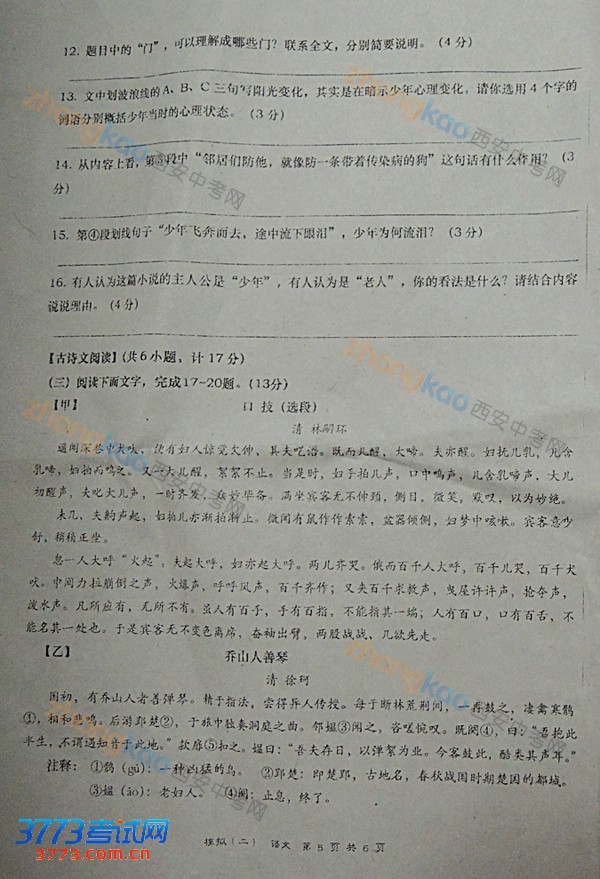 12. 题目中的“门”，可以理解成哪些门？联系全文，分别简要说明。（4分）
13. 文中划波浪线的A、B、C三句写阳光变化，其实是在暗示少年心理变化。请你选用4个字的
词语分别概括少年当时的心理状态。（3分）
14. 从内容上看，第③段中“邻居们防他，就像防一条带着传染病的狗”这句话有什么作用？（3
分）
15. 第④段划线句子“少年飞奔而去，途中流下眼泪”，少年为何流泪？（3分）
16. 有人认为这篇小说的主人公是“少年”，有人认为是“老人”，你的看法是什么？请结合内容
说说理由。（4分）
【古诗文阅读】（共6小题，计17分）
（三）阅读下面文字，完成17~20题。（13分）
【甲】 口 技（选段）
清 林嗣环
遥闻深巷中犬吠，便有妇人惊觉欠伸，其夫呓语。既而儿醒，大啼。夫亦醒。妇抚儿乳，儿含
乳啼，妇拍而呜之。又一大儿醒，絮絮不止。当是时，妇手拍儿声，口中呜声，儿含乳啼声，大儿
初醒声，夫叱大儿声，一时齐发，众妙毕备。满座宾客无不伸颈，侧目，微笑，默叹，以为妙绝。
未几，夫齁声起，妇拍儿亦渐拍渐止。微闻有鼠作作索索，盆器倾侧，妇梦中咳嗽。宾客意少
舒，稍稍正坐。
忽一人大呼“火起”，夫起大呼，妇亦起大呼。两儿齐哭。俄而百千人大呼，百千儿哭，百千犬
吠。中间力拉崩倒之声，火爆声，呼呼风声，百千齐作；又夹百千求救声，曳屋许许声，抢夺声，
泼水声。凡所应有，无所不有。虽人有百手，手有百指，不能指其一端；人有百口，口有百舌，不
能名其一处也。于是宾客无不变色离席，奋袖出臂，两股战战，几欲先走。
【乙】 乔山人善琴
清 徐珂
国初，有乔山人者善弹琴。精于指法，尝得异人传授。每于断林荒荆间，一再鼓之，凄禽寒鹘
①，相和悲鸣。后游郢楚②，于旅中独奏洞庭之曲。邻媪③闻之，咨嗟惋叹。既阕④，曰：“吾抱此
半生，不谓遇知音于此地。”款扉⑤扣之。媪曰：“吾夫存日，以弹絮为业。今客鼓此，酷类其声耳。”
注释：①鹘（gǔ）：一种凶猛的鸟。 ②郢楚：即楚郢，古地名，春秋战国时期楚国的都城。
③媪（ǎo）：老妇人。 ④阕：止息，终了。
模拟（二） 语文 第5页 共6页
3773考试网
www.3773.com.cn
zhongkao西安中考网
zhongkao西安中考网
zhongkao西安中考网
zhongkao西安中考网